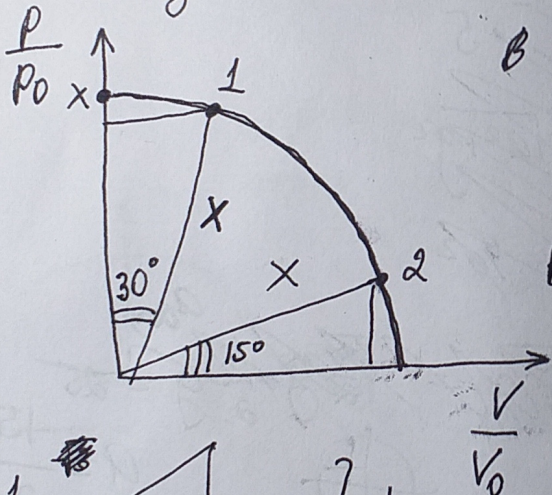 P
P0
x
1
B
X
X
2
30°
15°
V
V0
2